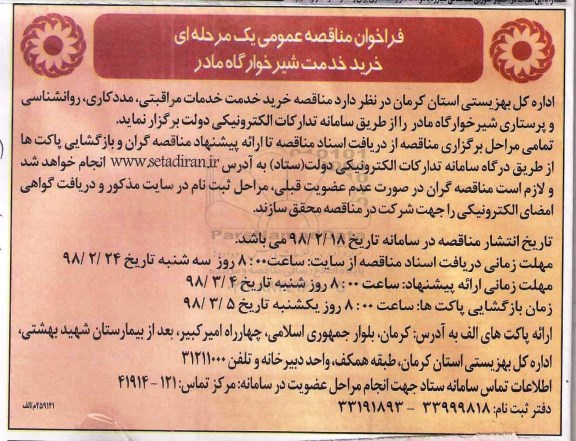 فراخوان مناقصه عمومی یک مرحله ای
خرید خدمت شیر خوار گاه مادر
اداره کل بهزیستی استان کرمان در نظر دارد مناقصه خرید خدمت خدمات مراقبتی، مددکاری، روانشناسی
و پرستاری شیر خوار گاه مادر را از طریق سامانه تدارکات الکترونیکی دولت برگزار نماید.
تمامی مراحل برگزاری مناقصه از دریافت اسناد مناقصه تا ارائه پیشنهاد مناقصه گران و بازگشایی پاکت ها
از طریق درگاه سامانه تدارکات الکترونیکی دولت(ستاد) به آدرس www.setadiran.ir انجام خواهد شد
و لازم است مناقصه گران در صورت عدم عضویت قبلی، مراحل ثبت نام در سایت مذکور و دریافت گواهی
امضای الکترونیکی را جهت شرکت در مناقصه محقق سازند.
تاریخ انتشار مناقصه در سامانه تاریخ ۹۸/۲/۱۸ می باشد.
مهلت زمانی دریافت اسناد مناقصه از سایت: ساعت ۸:۰۰ روز سه شنبه تاریخ ۹۸/۲/۲۴
مهلت زمانی ارائه پیشنهاد: ساعت ۸:۰۰ روز شنبه تاریخ ۹۸/۳/۴
زمان بازگشایی پاکت ها: ساعت ۸:۰۰ روز یکشنبه تاریخ ۹۸/۳/۵
ارائه پاکت های الف به آدرس: کرمان، بلوار جمهوری اسلامی، چهارراه امیر کبیر، بعد از بیمارستان شهید بهشتی،
اداره کل بهزیستی استان کرمان، طبقه همکف، واحد دبیرخانه و تلفن ۳۱۲۱۱۰۰۰
اطلاعات تماس سامانه ستاد جهت انجام مراحل عضویت در سامانه: مرکز تماس: ۱۲۱-۴۱۹۱۴
دفتر ثبت نام: ۳۳۹۹۹۸۱۸ - ۳۳۱۹۱۸۹۳
۴۵۹۱۴۱م الف